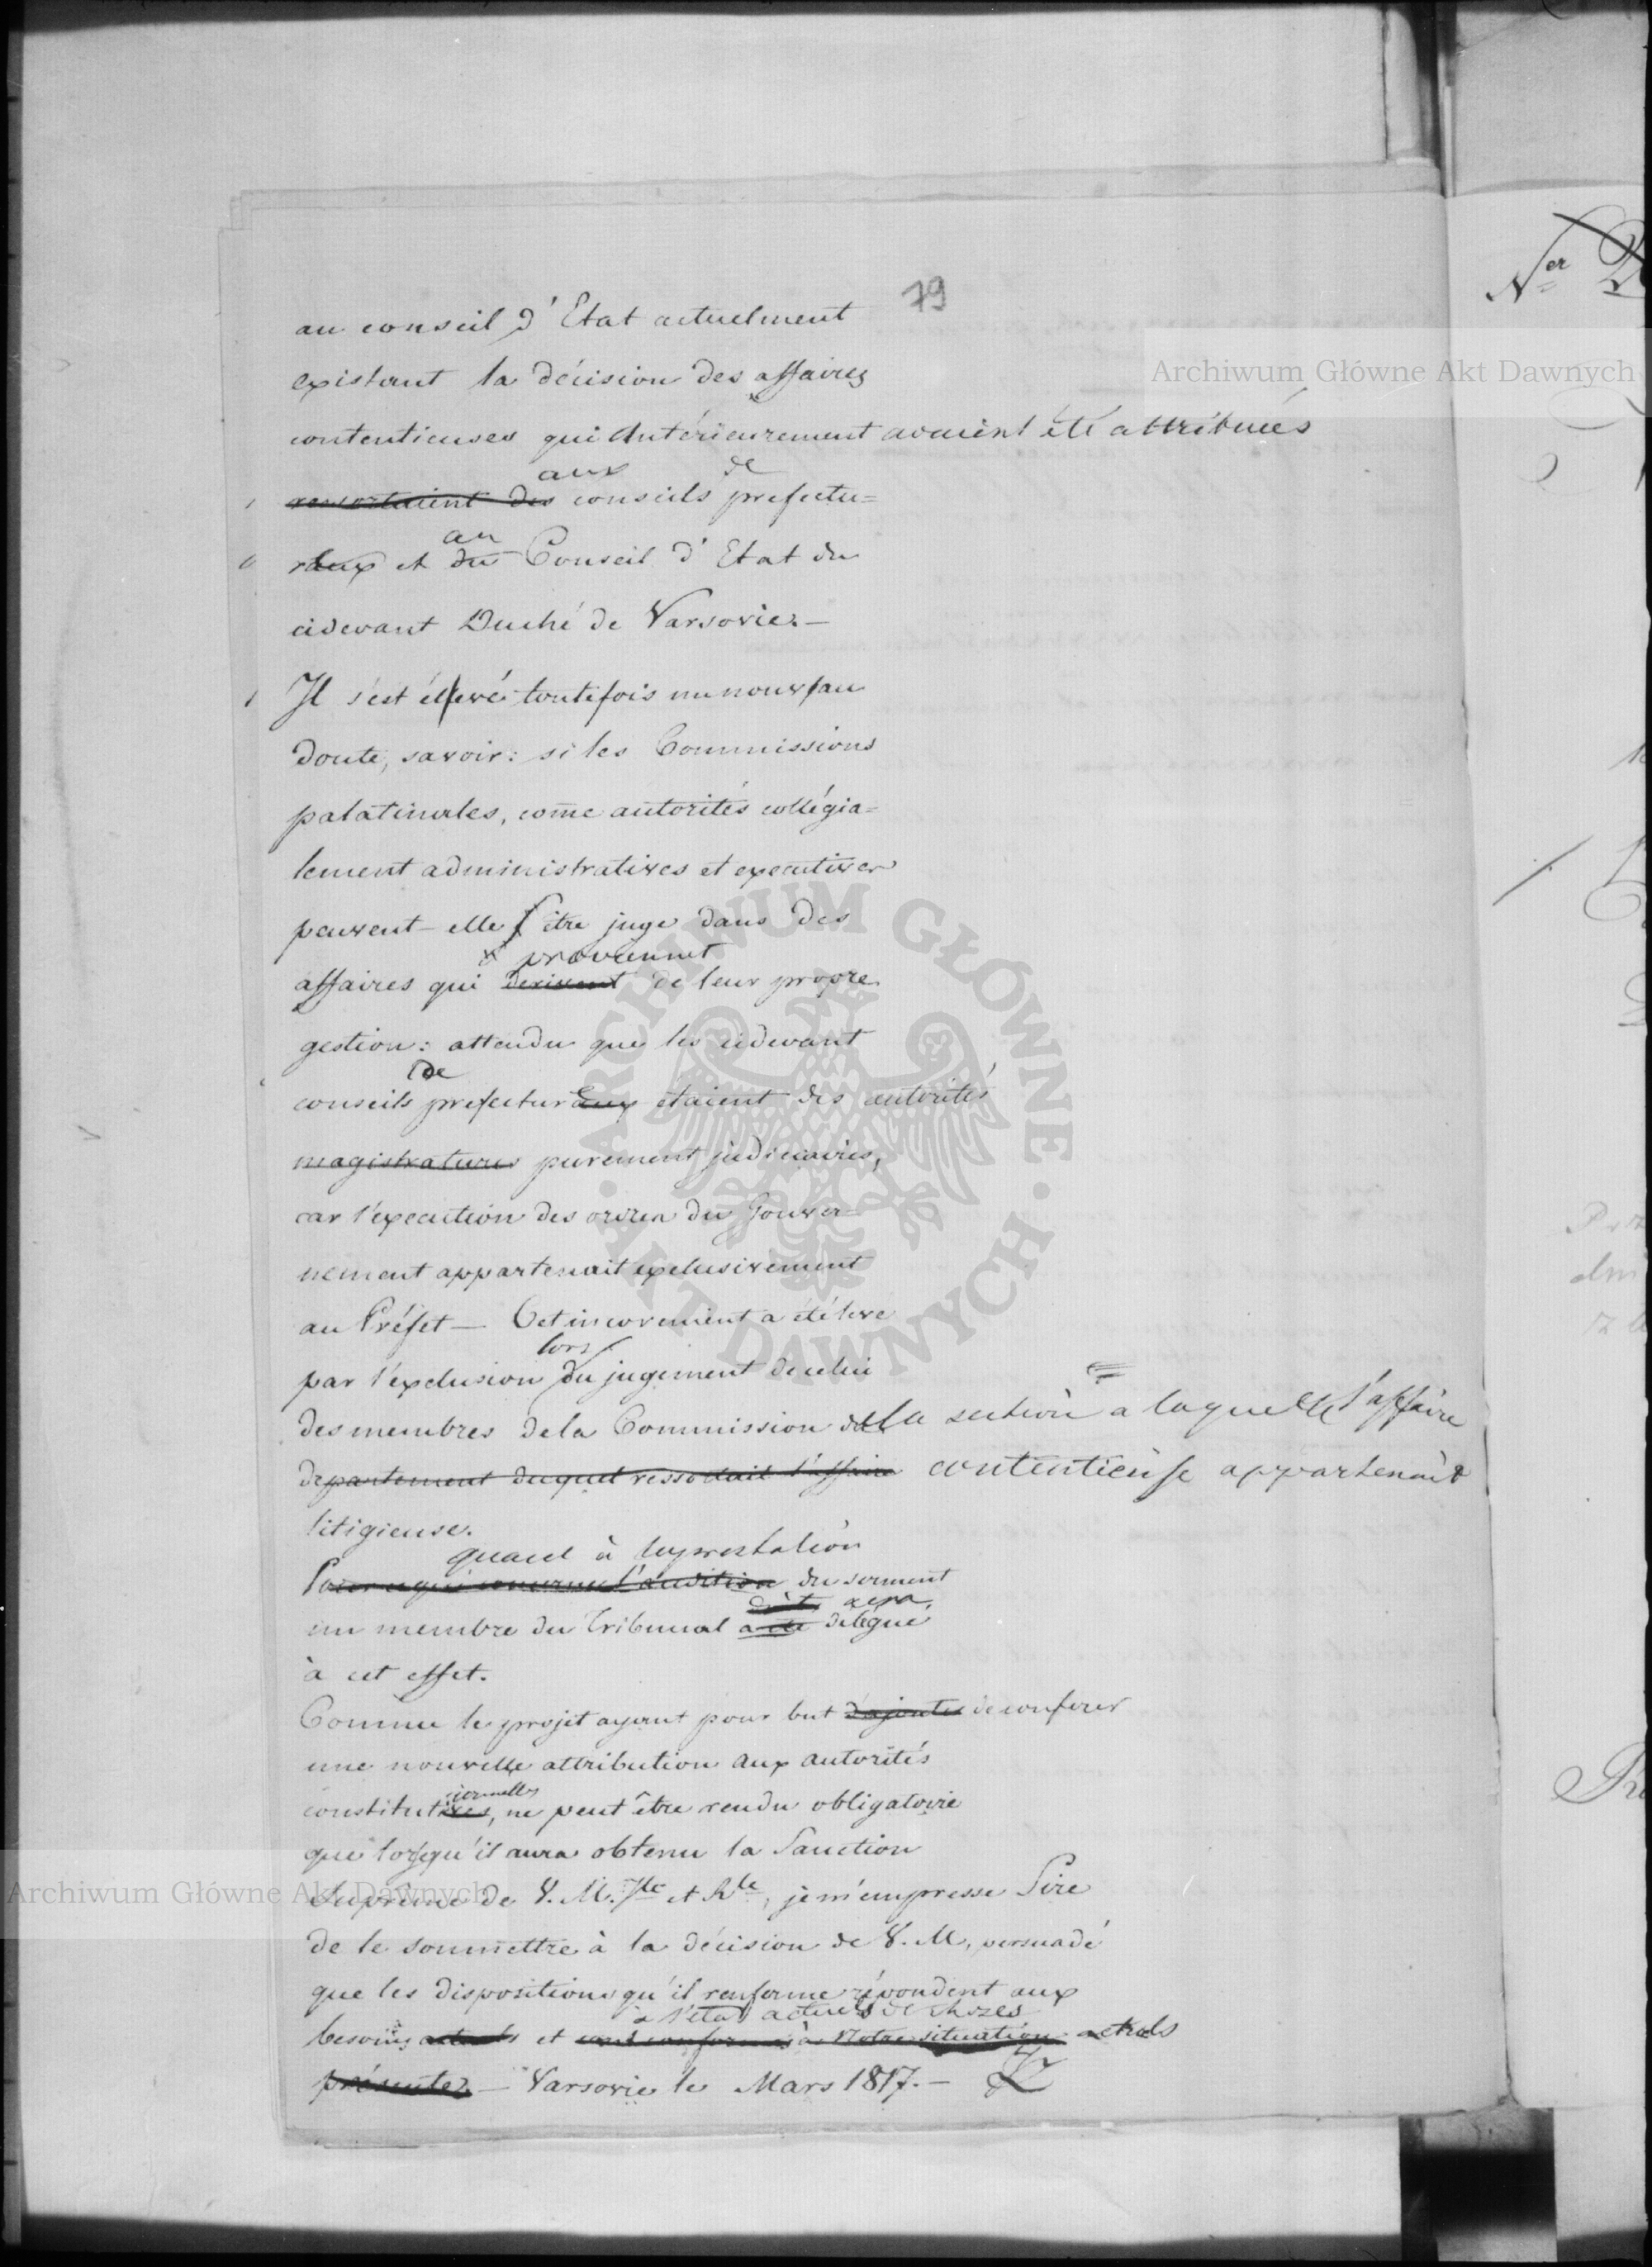 79
au conseil d'Etat actuelment
existant la décision des affaires
contentieuses qui antérieurement avaient été attribuées
aux de
ressortaient des conseils prefectu=
au
raux et du Conseil d'Etat du
cidevant Duché de Varsovie.—
Il s'est élevé toutefois un nouveau
doute, savoir: si les Commissions
palatinales, come autorités collégia=
lement administratives et executives
peuvent-elles être juge dans des
proviennent
affaires qui derivent de leur propre
gestion: attendu que les cidevant
de
conseils prefecturaux etaient des autorités
magistratures purement judiciaires,
car l'execution des ordres du Gouver=
nement appartenait exclusivement
au Préfet — Cet inconvenient a été levé
lors
par l'exclusion du jugement de celui
des membres de la Commission de la section a laquelle l'affaire
departement duquel ressortait l'affaire contentieuse appartenait
litigieuse.
quand à la prestation
Pour ce qui concerne l'audition du serment
doit sera
un membre du Tribunal a été délégué
à cet effet.
Comme le projet ayant pour but d'ajouter de conferer
une nouvelle attribution aux autorités
ionnelles
constitutives, ne peut être rendu obligatoire
que lorsqu'il aura obtenu la Sanction
Suprême de V. M. Jle et Rle, je m'empresse Sire
de le soumettre à la décision de V. M. persuadé
que les dispositions qu'il renferme répondent aux
à l'état actuel de chozes
besoins actuels et sont conformes à notre situation actuels
présente. — Varsovie le Mars 1817.—
Archiwum Główne Akt Dawnych
Archiwum Główne Akt Dawnych
ARCHIWUM GŁÓWNE AKT DAWNYCH
Ner